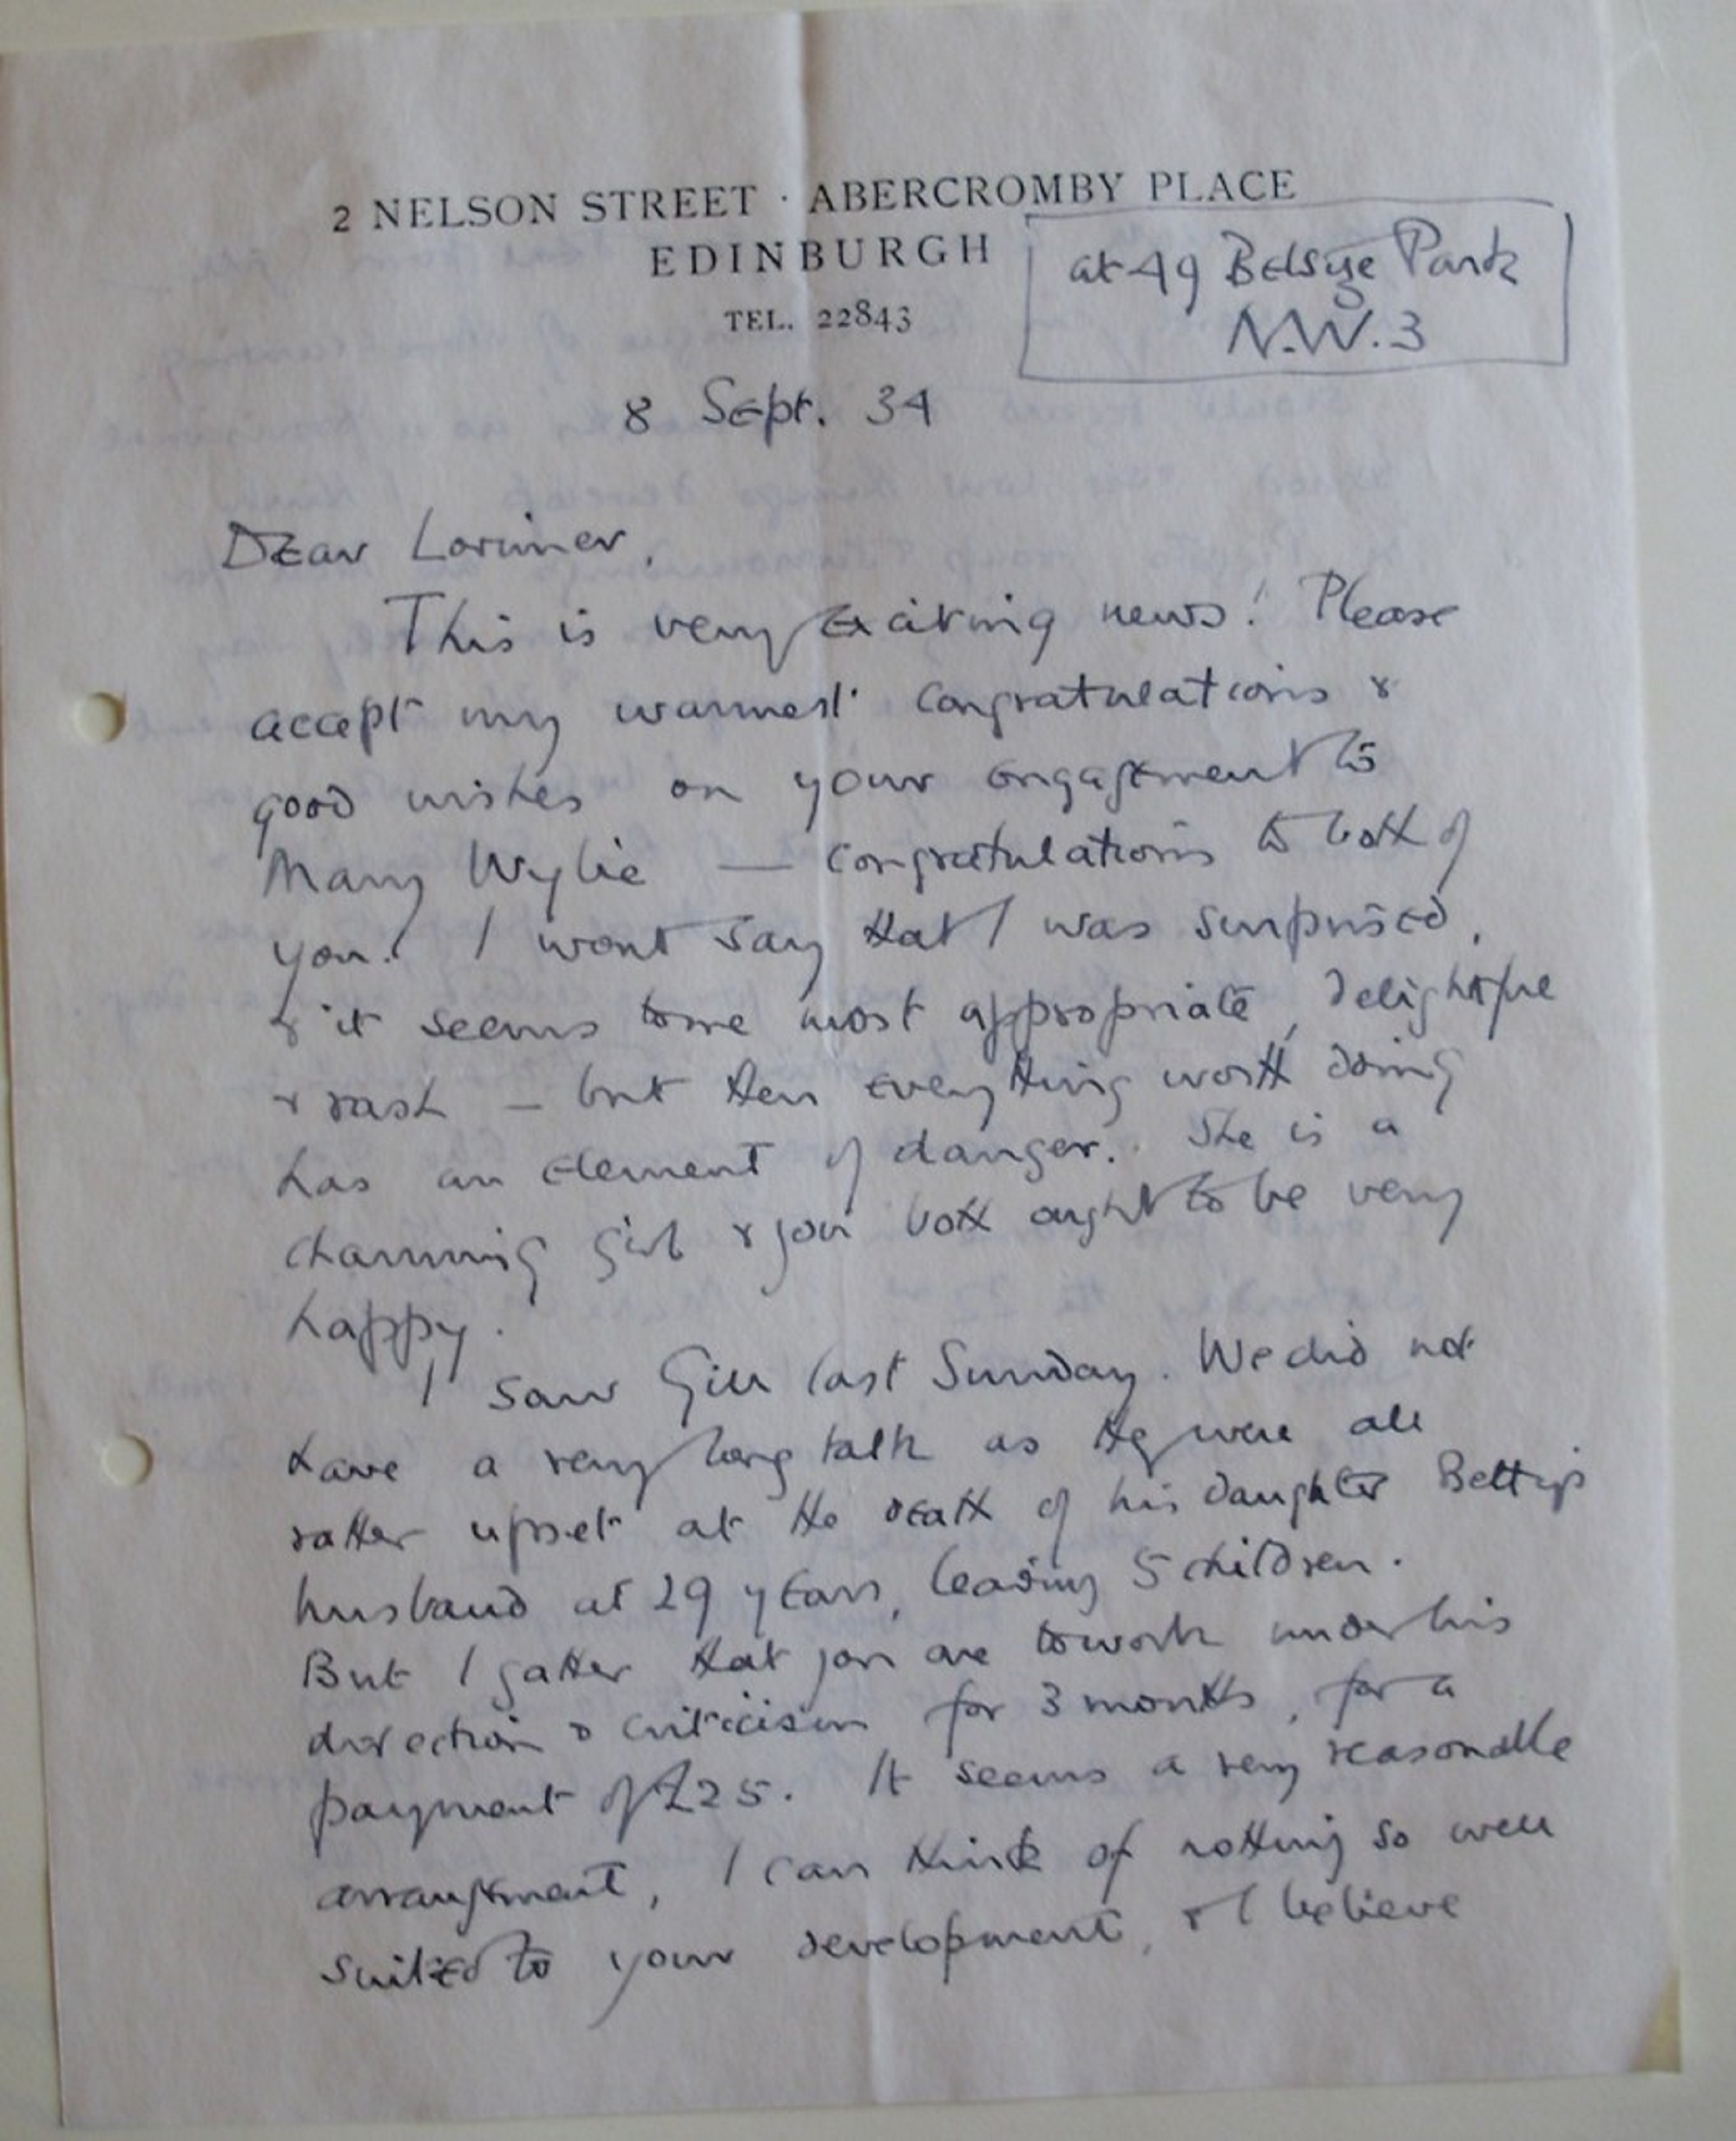 2 NELSON STREET · ABERCROMBY PLACE
EDINBURGH
TEL. 22843
at 49 Belsize Park
N.W.3
8 Sept. 34
Dear Lorimer,
This is very exciting news! Please
accept my warmest congratulations &
good wishes on your engagement to
Mary Wylie — congratulations to both of
you! I wont say that I was surprised,
& it seems to me most appropriate, delightful
& rash — but then everything worth doing
has an element of danger. She is a
charming girl & you both ought to be very
happy.
I saw Gill last Sunday. We did not
have a very long talk as they were all
rather upset at the death of his daughter Betty's
husband at 29 years, leaving 5 children.
But I gather that you are to work under his
direction & criticism for 3 months, for a
payment of £25. It seems a very reasonable
arrangement, I can think of nothing so well
suited to your development, & I believe